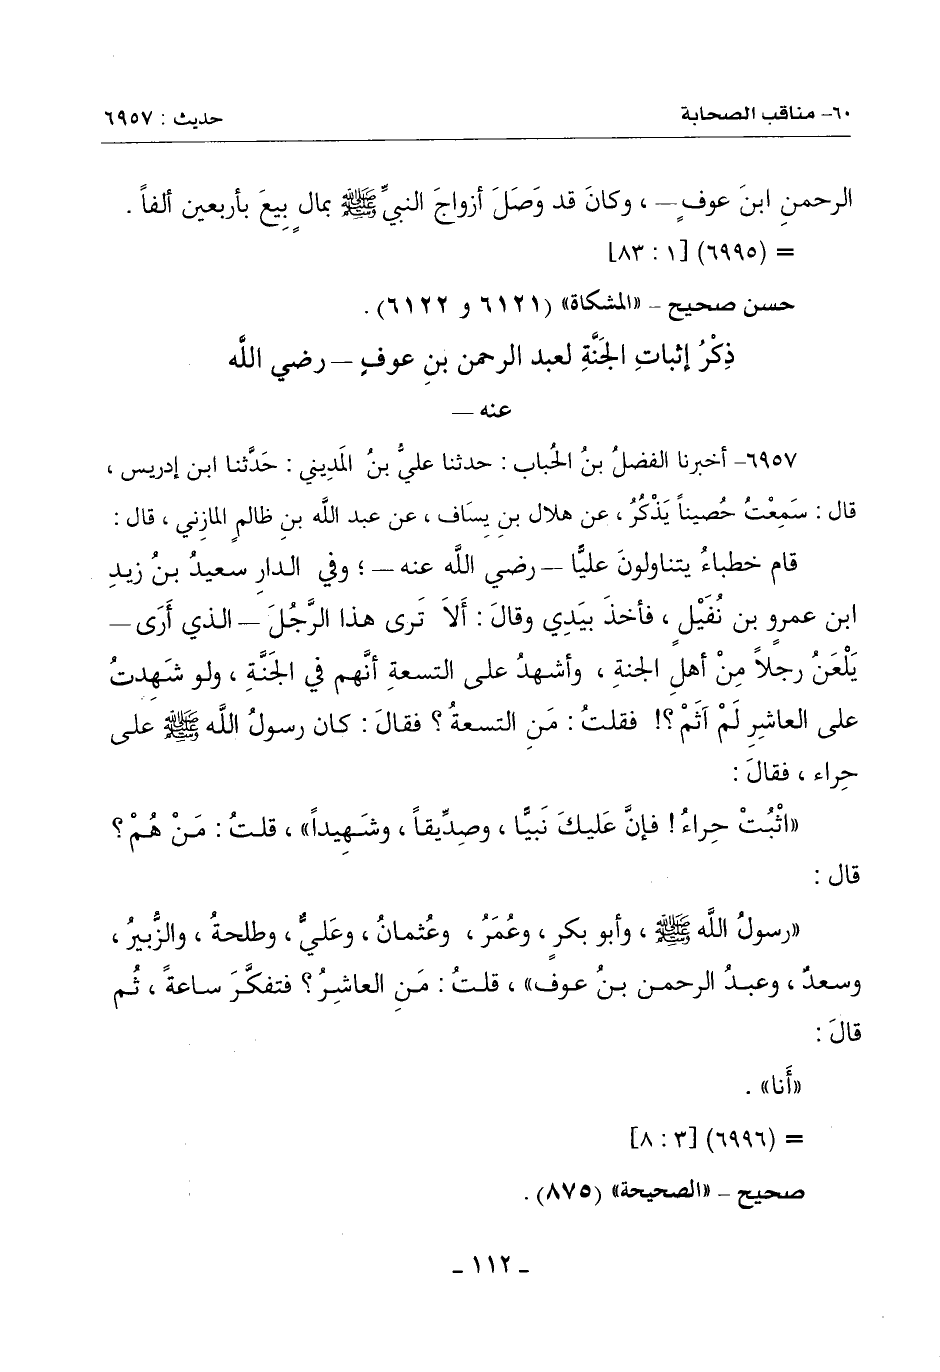 ٦٠- مناقب الصحابة حديث : ٦٩٥٧
الرحمنِ ابنَ عوفٍ— ، وكانَ قد وَصَلَ أزواجَ النبيِّ ﷺ بمالٍ بِيعَ بأربعين ألفاً .
= (٦٩٩٥) [١ : ٨٣]
حسن صحيح - «المشكاة» (٦١٢١ و ٦١٢٢) .
ذِكْرُ إثباتِ الجَنَّةِ لعبد الرحمن بنِ عوفٍ — رضي اللَّه
عنه —
٦٩٥٧- أخبرنا الفضلُ بنُ الحُباب : حدثنا عليُّ بنُ المَدِيني : حَدَّثنا ابن إدريس ،
قال : سَمِعْتُ حُصيناً يَذْكُرُ ، عن هلال بنِ يِسَاف ، عن عبد اللَّه بنِ ظالمٍ المازِني ، قال :
قام خطباءُ يتناولونَ عليًّا — رضي اللَّه عنه — ؛ وفي الدارِ سعيدُ بنُ زيدِ
ابن عمرِو بن نُفَيْلٍ ، فأخذَ بيَدِي وقالَ : أَلاَ تَرى هذا الرَّجُلَ — الذي أَرَى —
يَلْعَنُ رجلاً مِنْ أهلِ الجنة ، وأشهدُ على التسعةِ أنَّهم في الجَنَّةِ ، ولو شَهِدتُ
على العاشرِ لَمْ آثَمْ؟! فقلتُ : مَنِ التسعةُ؟ فقالَ : كان رسولُ اللَّه ﷺ على
حِراء ، فقالَ :
«اثْبُتْ حِراءُ! فإنَّ عَليكَ نَبيًّا ، وصِدِّيقاً ، وشَهِيداً» ، قلتُ : مَنْ هُمْ؟
قال :
«رسولُ اللَّه ﷺ ، وأبو بكرٍ ، وعُمَرُ ، وعُثمانُ ، وعَليٌّ ، وطلحةُ ، والزُّبيرُ ،
وسعدٌ ، وعبدُ الرحمن بنُ عوف» ، قلتُ : مَنِ العاشرُ؟ فتفكَّرَ ساعةً ، ثُم
قالَ :
«أَنا» .
= (٦٩٩٦) [٣ : ٨]
صحيح - «الصحيحة» (٨٧٥) .
- ١١٢ -